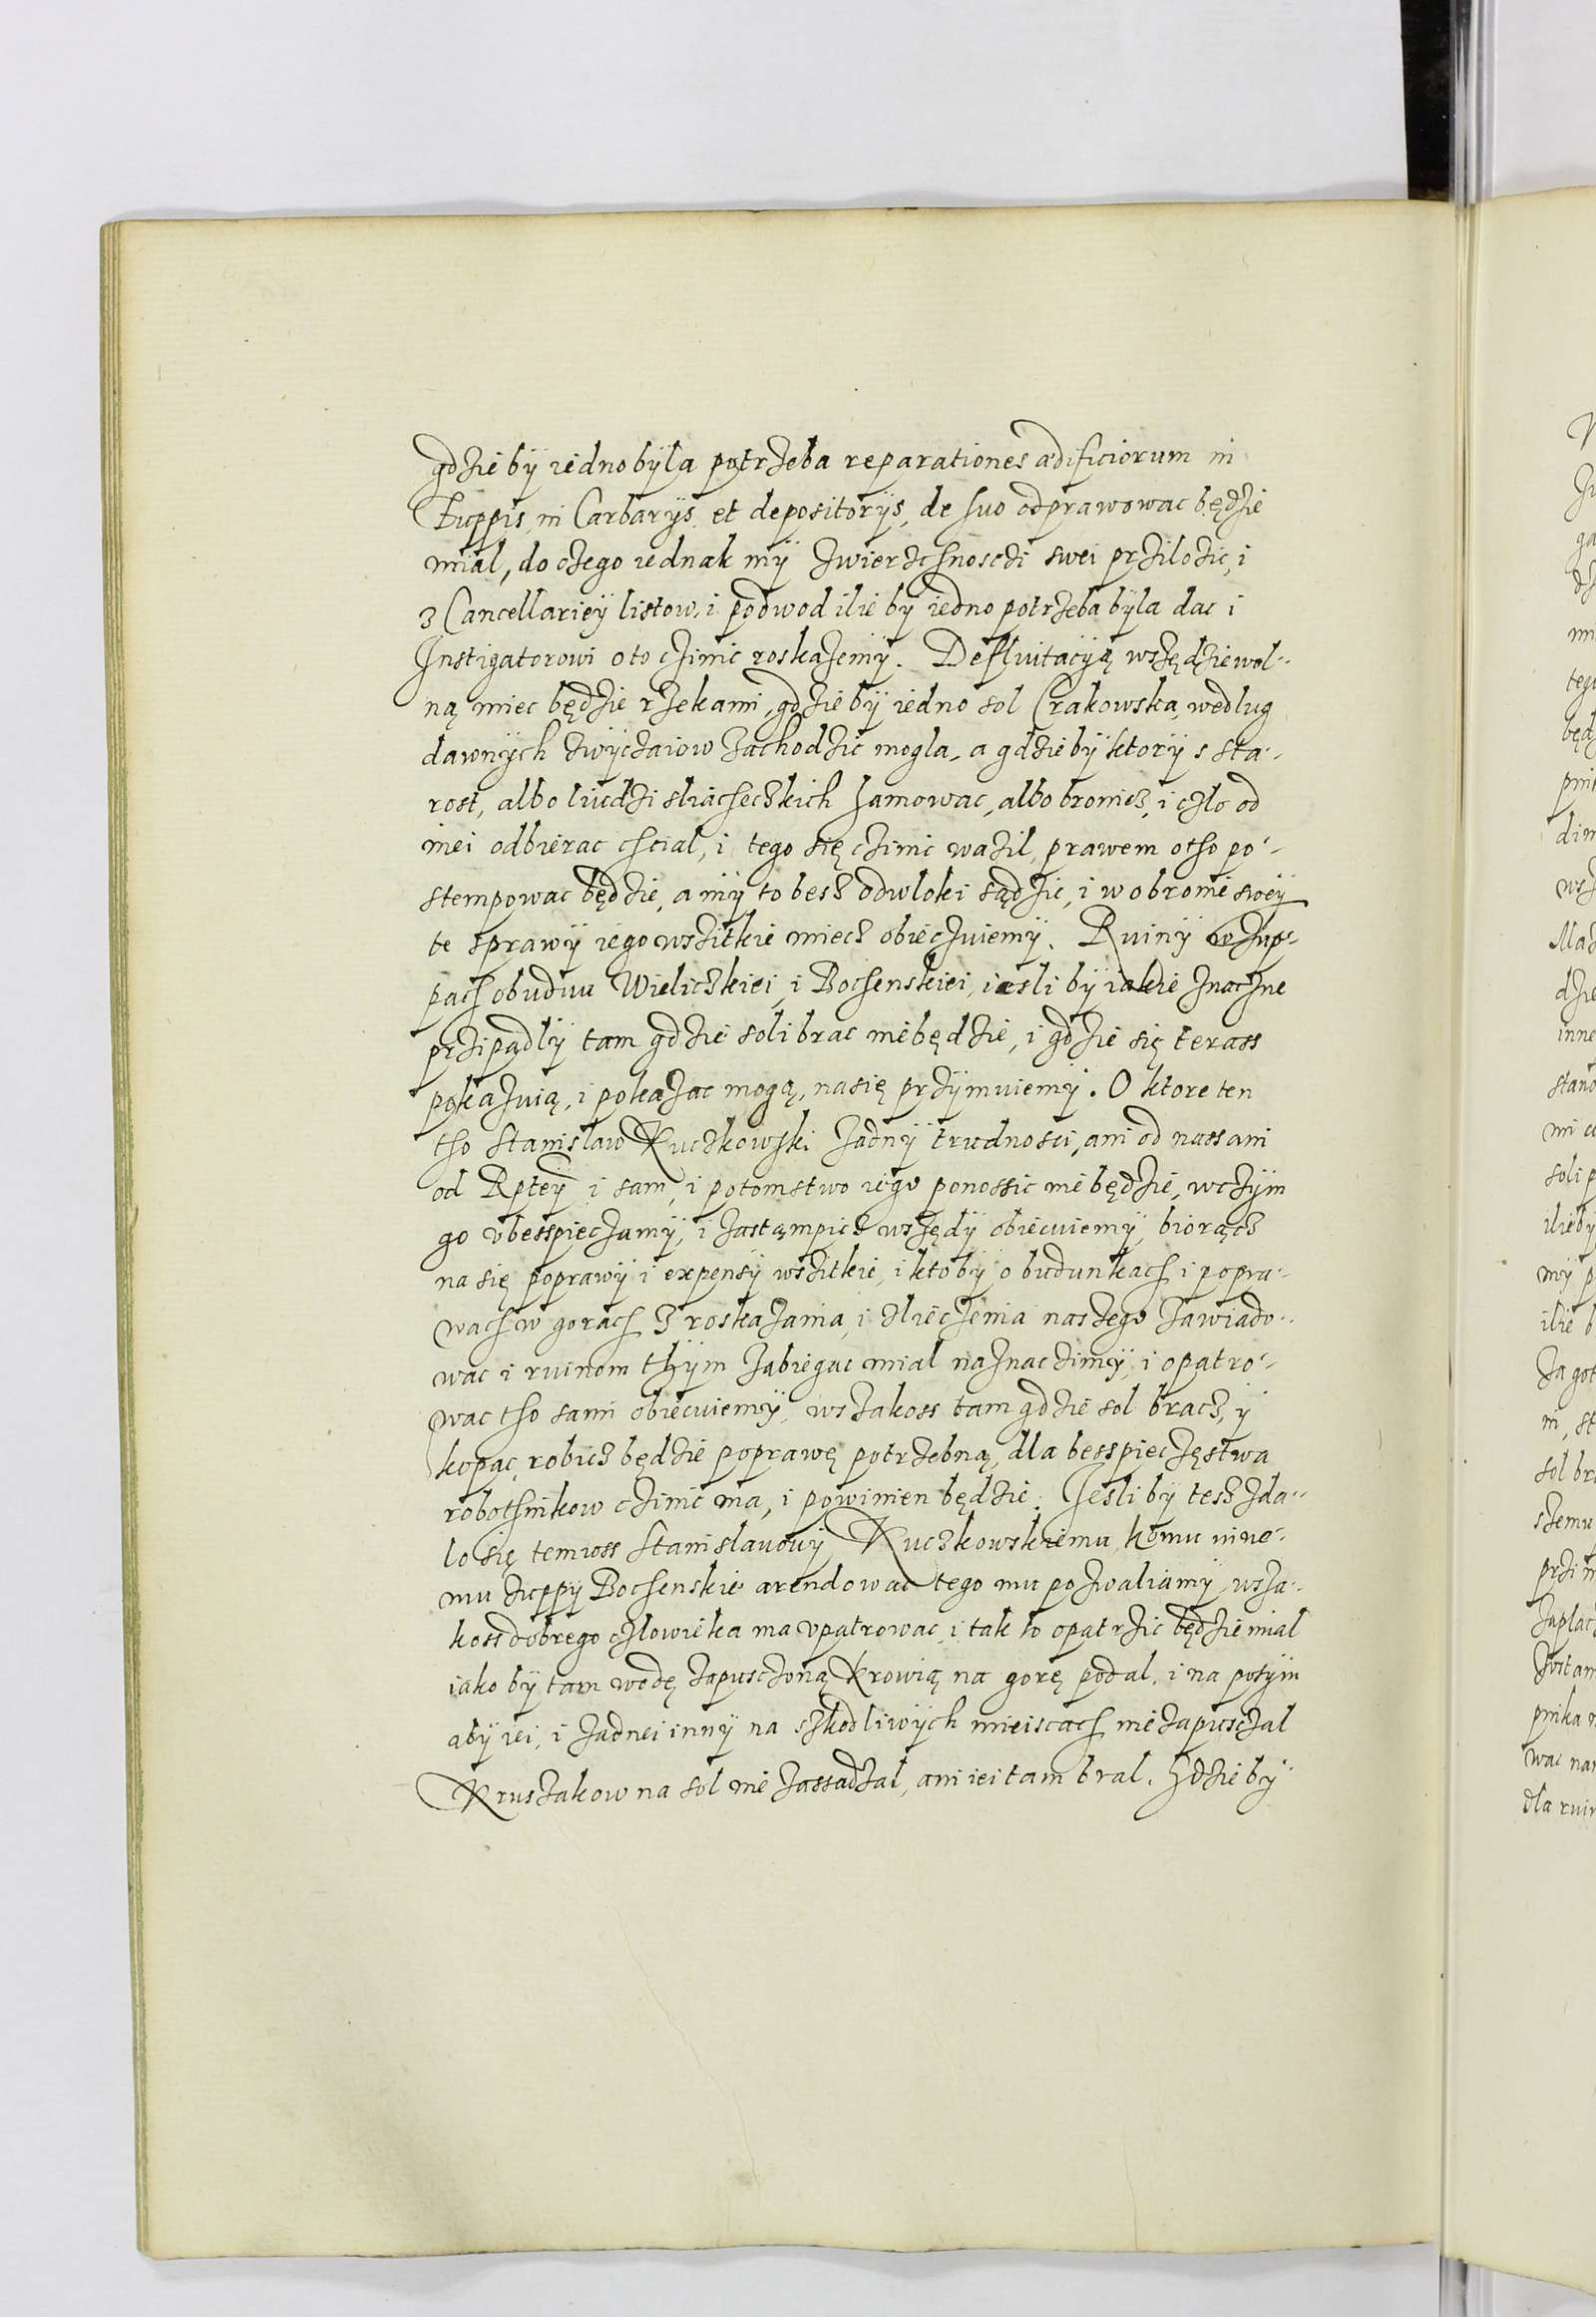 gdzie by iedno byla potrzeba reparationes ædificiorum in
Zuppis, in Carbarijs et depositorijs, de suo odprawowac będzie
mial, do czego iednak my zwierzchnosczi swei przilozic, i
z Cancellariey listow, i podwod ilie by iedno potrzeba byla dac i
Instigatorowi o to czinic roskazemy. Defluitacyą wszędzie wol-
ną miec będzie rzekami, gdzie by iedno sol Crakowska, wedlug
dawnych zwyczaiow zachodzic mogla, a gdzie by ktory s sta-
rost, albo liudzi sliacheczkich hamowac, albo bronicz, i czlo od
niei odbierac chcial, i tego się czinic wazil, prawem otho po-
stempowac będzie, a my to besz odwloki sądzic, i w obronie swey
te sprawy iego wszitkie miecz obieczuiemy. Ruiny w zup-
pach obudwu Wieliczkiei, i Bochenskiei, iesli by iakie znaczne
przipądly tam gdzie soli brac nie będzie, i gdzie się terass
pokazuią, i pokazac mogą, na się przymuiemy. O ktore ten
tho Stanislaw Kuczkowski zadny trudnosci, ani od nass ani
od Rptey i sam, i potomstwo iego ponossic nie będzie, w czym
go vbesspieczamy, i zastąmpicz wszędy obiecuiemy, biorącz
na się poprawy i expensy wszitkie, i kto by o budunkach i popra-
wach w gorach z roskazania, i zlieczenia naszego zawiado-
wac i ruinom thym zabiegac mial naznaczimy, i opatro-
wac tho sami obiecuiemy, wszakoss tam gdzie sol bracz, y
kopac, robicz będzie poprawę potrzebną, dla besspieczęstwa
robothnikow czinic ma, i powinien będzie. Jesli by tesz zda-
lo się temuss Stanislauowy Kuczkowskiemu, komu inne-
mu zuppy Bochenskie arendowac tego mu pozwaliamy, wsza-
koss dobrego człowieka ma vpatrowac, i tak to opatrzic będzie mial
iako by tam wodę zapusczoną krowią na gorę podal, i na potym
aby iei, i zadnei inny na szkodliwych mieiscach nie zapusczal
Kruszakow na sol nie zassadzal, ani iei tam bral. Gdzie by